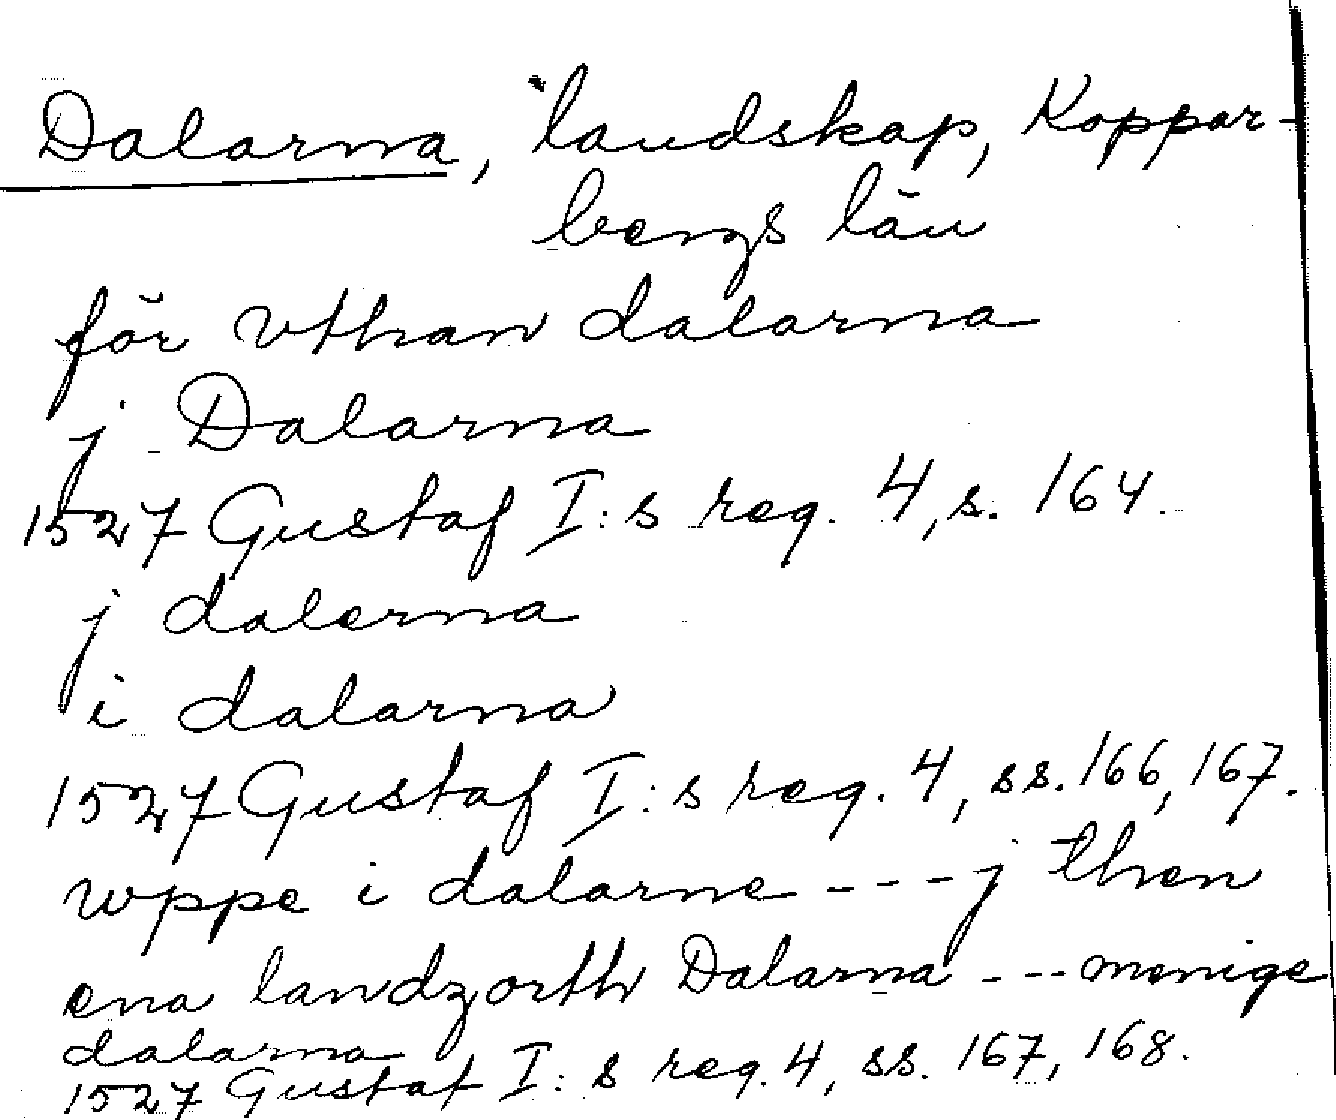 Dalarna, landskap, Koppar-
bergs län
för vthan dalarna
j Dalarna
1527 Gustaf I:s reg. 4, s. 164.
j dalerna
i dalarna
1527 Gustaf I:s reg. 4, ss. 166, 167.
wppe i dalarne ---- j then
ena landzorth Dalarna --- menige
dalarna
1527 Gustaf I:s reg. 4, ss. 167, 168.